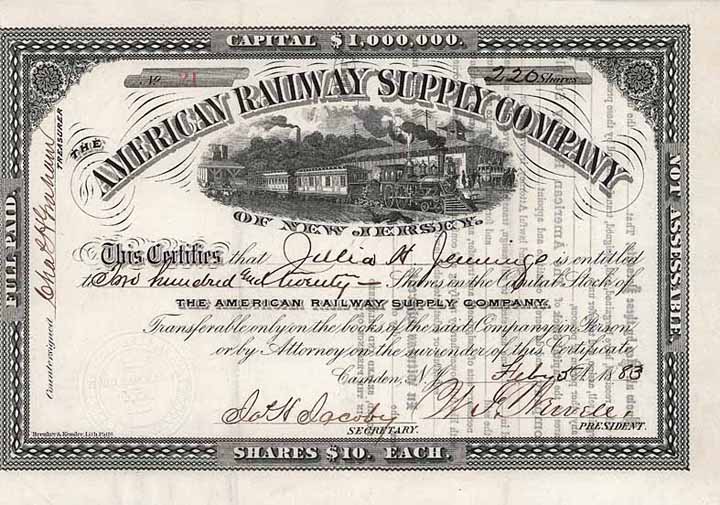 CAPITAL $1,000,000.
No 21
220 Shares
THE AMERICAN RAILWAY SUPPLY COMPANY
OF NEW JERSEY.
This Certifies that Julia H Jennings is entitled
to Two hundred and twenty — Shares in the Capital Stock of
THE AMERICAN RAILWAY SUPPLY COMPANY.
Transferable only on the books of the said Company in Person
or by Attorney on the surrender of this Certificate
Camden, N.J. Feby 5th 1883
Jos H Jacoby
SECRETARY.
PRESIDENT.
SHARES $10. EACH.
FULL PAID.
NOT ASSESSABLE.
Countersigned Chas H Graham
TREASURER